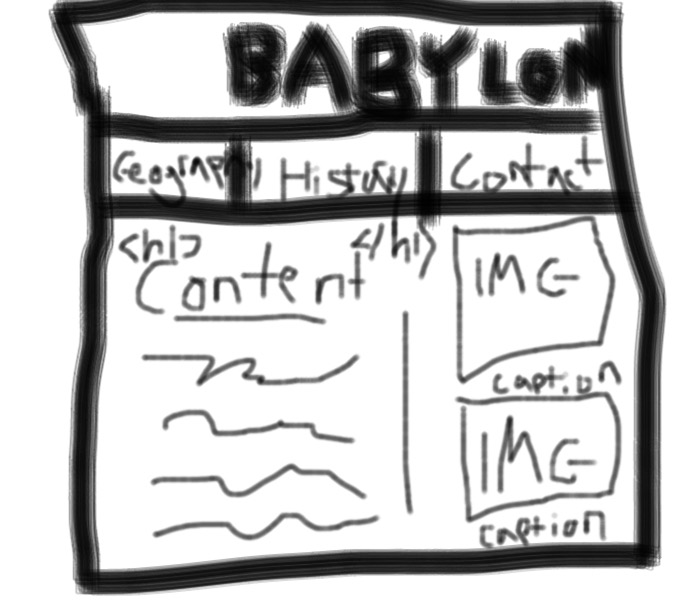 BABYLON
Geography History Contact
<h1> </h1>
Content
IMG
caption
IMG
caption